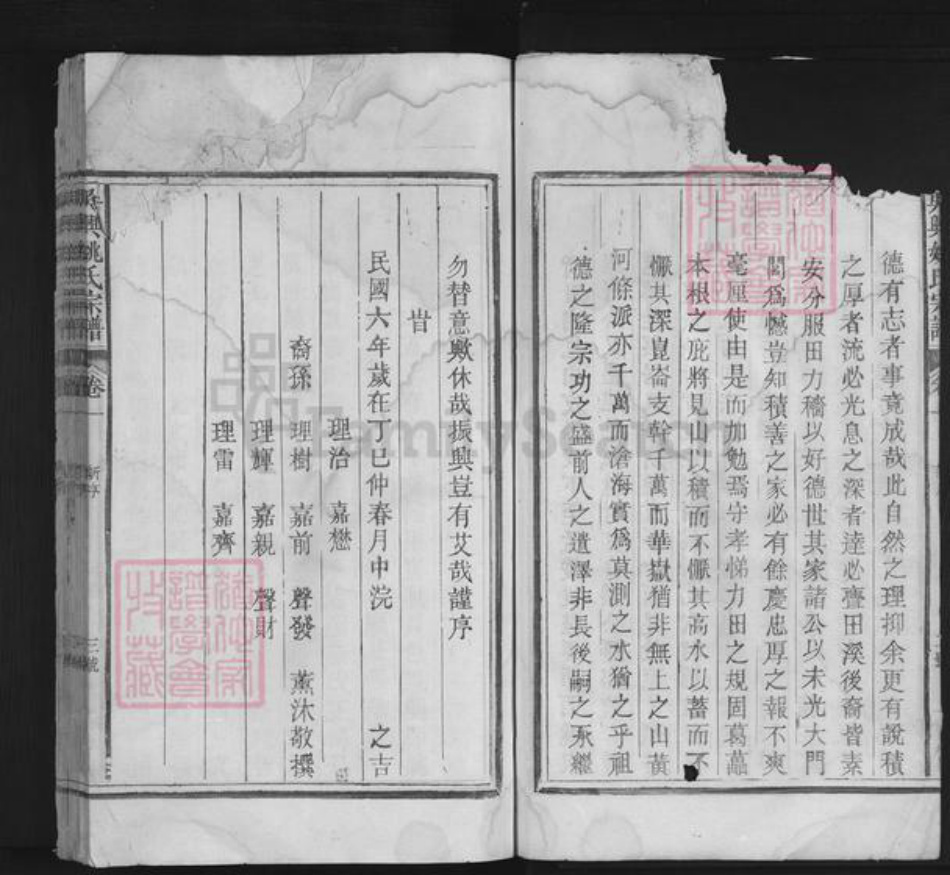 德有志者事竟成哉此自然之理抑余更有說積
之厚者流必光息之深者達必亹田溪後裔皆素
安分服田力穡以好德世其家諸公以未光大門
閭爲憾豈知積善之家必有餘慶忠厚之報不爽
毫厘使由是而加勉焉守孝悌力田之規固葛藟
本根之庇將見山以積而不厭其高水以蓄而不
厭其深崑崙支幹千萬而華嶽猶非無上之山黃
河條派亦千萬而滄海實爲莫測之水猶之乎祖
德之隆宗功之盛前人之遺澤非長後嗣之承繼
勿替意歟休哉振興豈有艾哉謹序
旹
民國六年歲在丁巳仲春月中浣 之吉
理治 嘉懋
裔孫 理樹 嘉前 聲發 薰沐敬撰
理輝 嘉親 聲財
理雷 嘉齊
吳興姚氏宗譜 卷一 新序 三號
FamilySearch